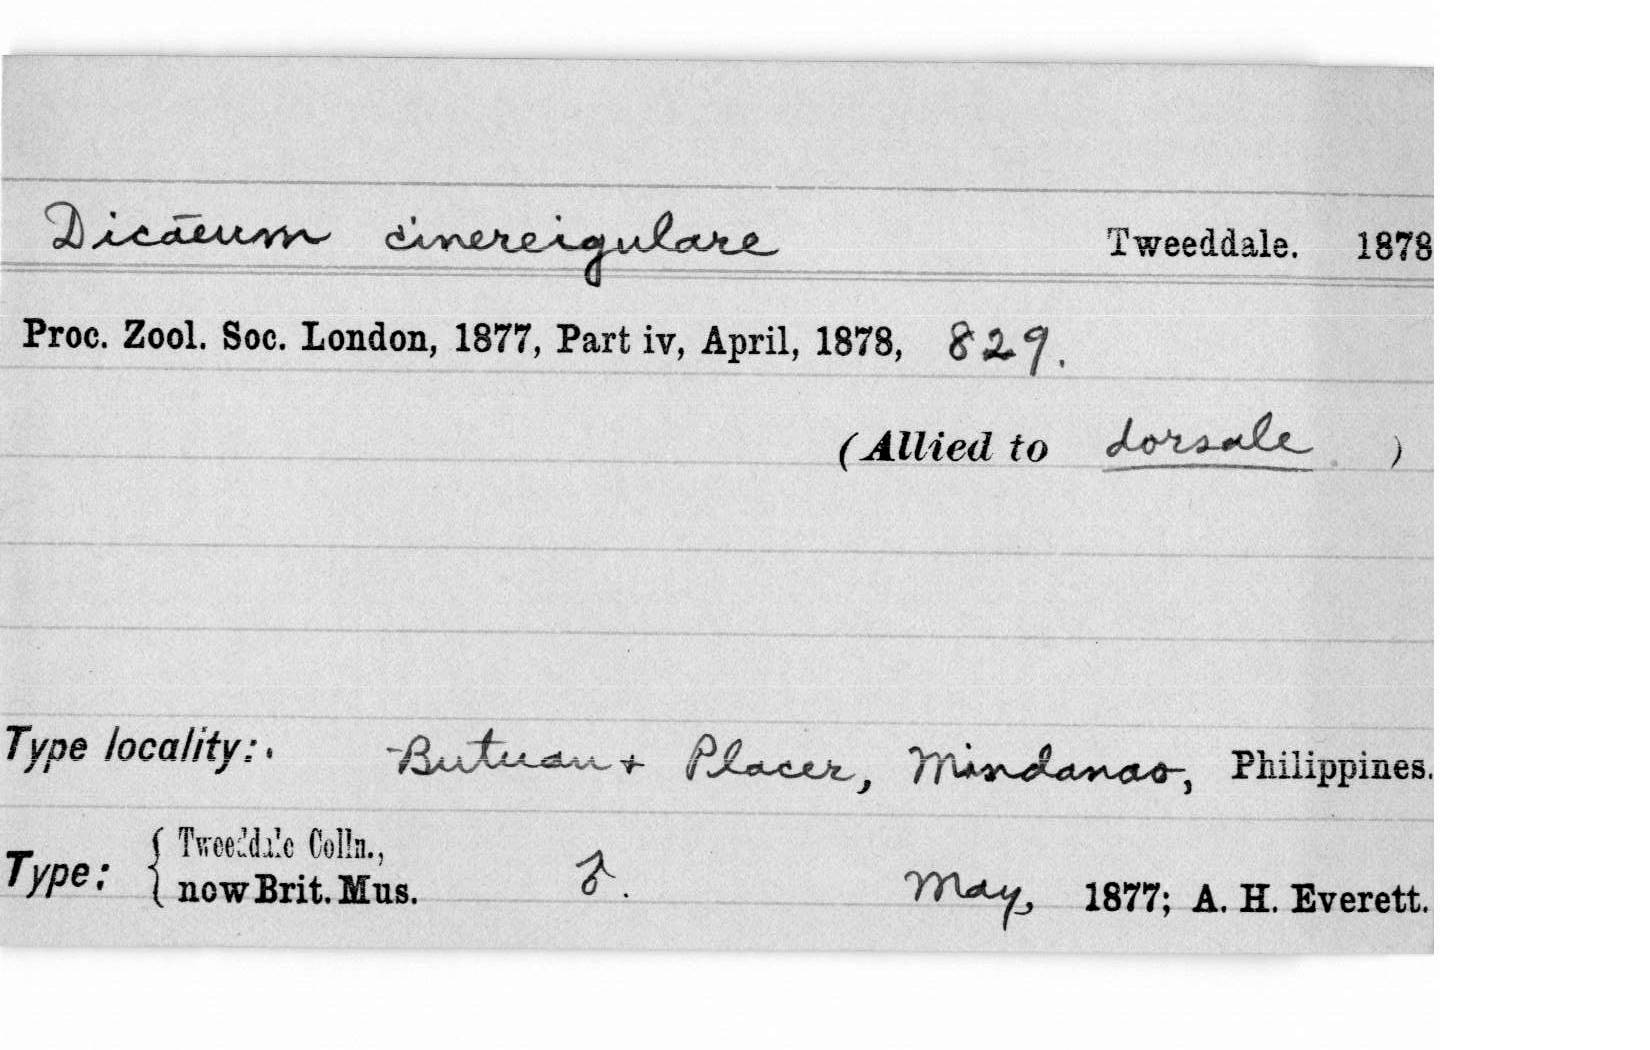 Dicaeum cinereigulare Tweeddale. 1878
Proc. Zool. Soc. London, 1877, Part iv, April, 1878, 829.
(Allied to dorsale )
Type locality: Butuan + Placer, Mindanao, Philippines.
Type: { Tweeddale Colln.,
now Brit. Mus. ♂. May, 1877; A. H. Everett.